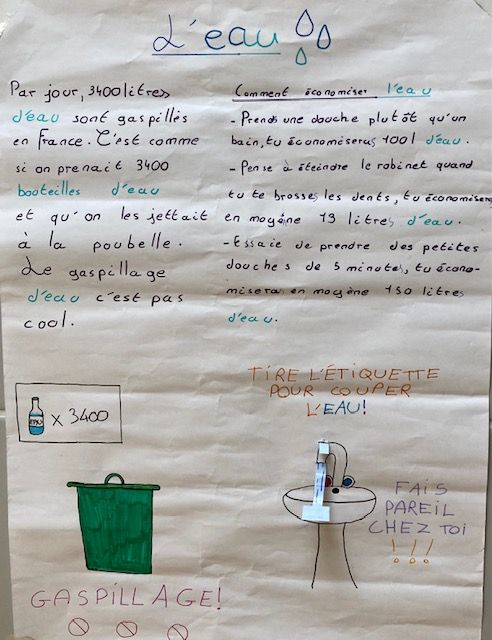 L'eau
Par jour, 3400 litres
d'eau sont gaspillés
en France. C'est comme
si on prenait 3400
booteilles d'eau
et qu'on les jettait
à la poubelle.
Le gaspillage
d'eau c'est pas
cool.
Comment économiser l'eau
- Prends une douche plutôt qu'un
bain, tu économiseras 100l d'eau.
- Pense à éteindre le robinet quand
tu te brosses les dents, tu économiseras
en moyène 13 litres d'eau.
- Essaie de prendre des petites
douches de 5 minutes, tu écono-
miseras en moyène 150 litres
d'eau.
x 3400
GASPILLAGE!
TIRE L'ÉTIQUETTE
POUR COUPER
L'EAU!
FAIS
PAREIL
CHEZ TOI
!!!